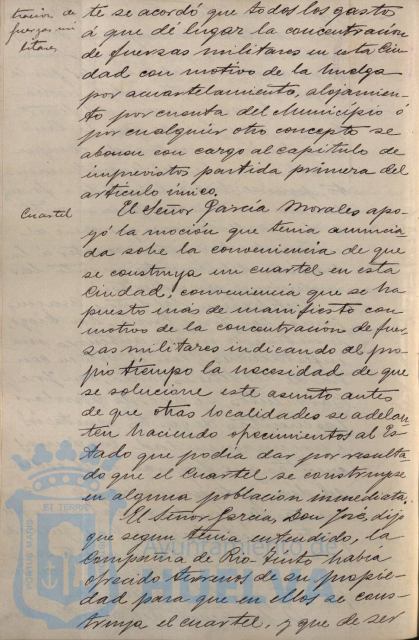 tración de
fuerzas mi
litares
te se acordó que todos los gastos
á que dé lugar la concentración
de fuerzas militares en esta Ciu
dad con motivo de la huelga
por acuartelamiento, alojamien-
to por cuenta del Municipio ó
por cualquier otro concepto se
abonen con cargo al capitulo de
imprevistos partida primera del
articulo único.
Cuartel
El Señor García Morales apo-
yó la moción que tenia anuncia
da sobe la conveniencia de que
se construya un cuartel en esta
Ciudad, conveniencia que se ha
puesto más de manifiesto con
motivo de la concentración de fuer
zas militares indicando al pro
pio tiempo la necesidad de que
se solucione este asunto antes
de que otras localidades se adelan
ten haciendo ofrecimientos al Es-
tado que podia dar por resulta
do que el Cuartel se construyese
en alguna población inmediata.
El Señor García, Don José, dijo
que segun tenia entendido, la
Compañia de Rio Tinto habia
ofrecido terrenos de su propie-
dad para que en ellos se cons-
truya el cuartel, y que de ser
PORTUS MARIS
ET TERRÆ
Ayuntamiento de